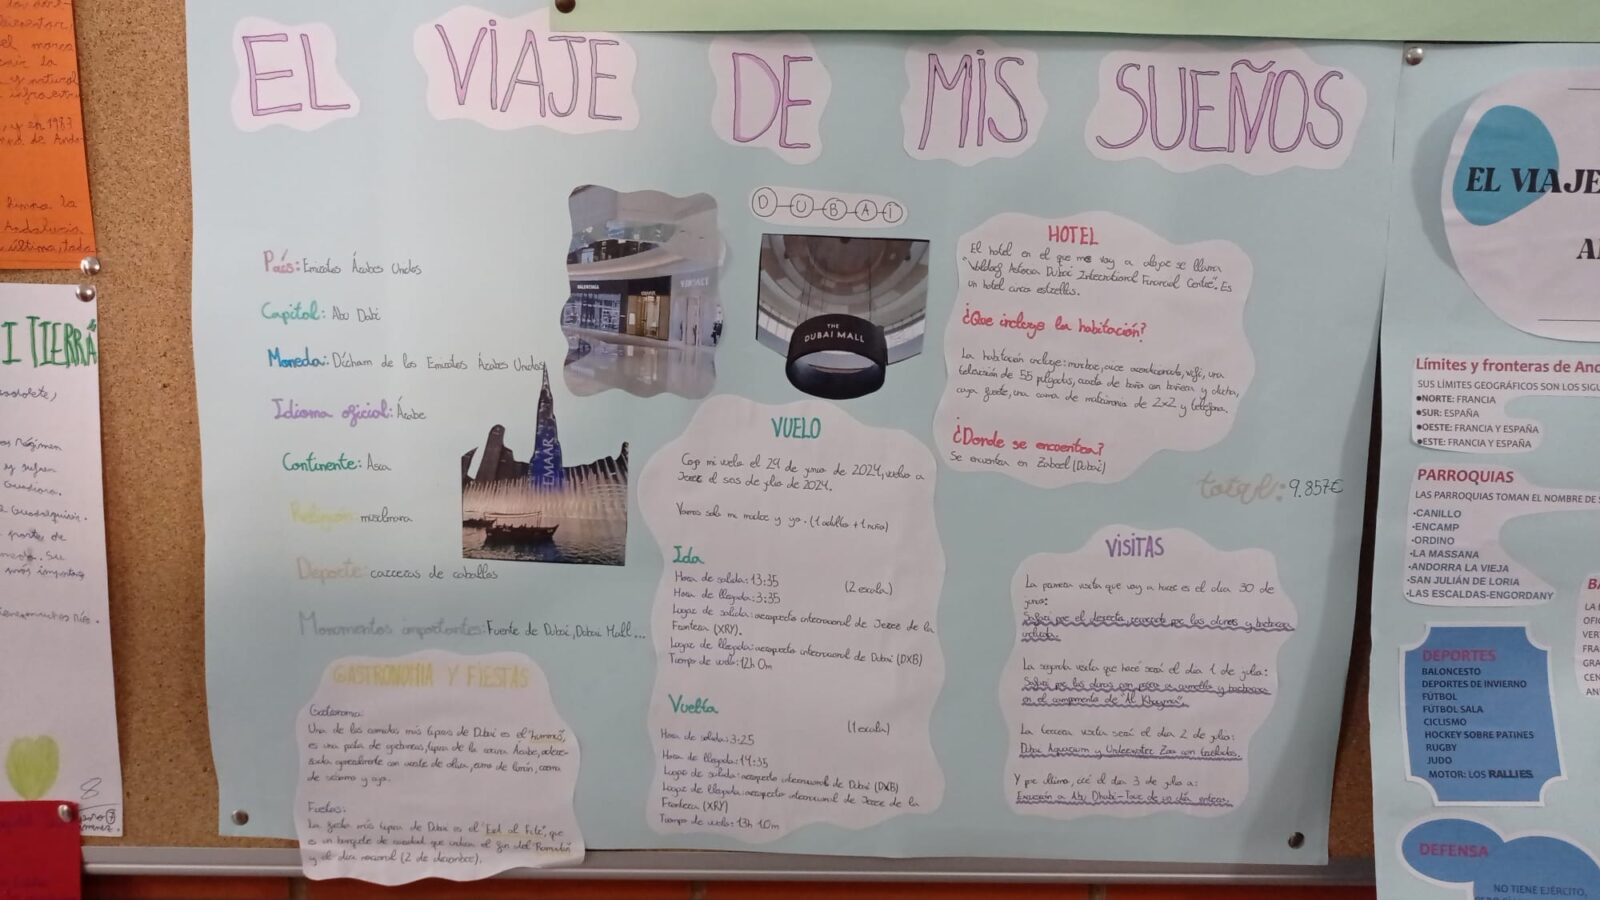 EL VIAJE DE MIS SUEÑOS
DUBAI
País: Emiratos Árabes Unidos
Capital: Abu Dabi
Moneda: Dírham de los Emiratos Árabes Unidos
Idioma oficial: Árabe
Continente: Asia
Religión: musulmana
Deporte: carreras de caballos
Monumentos importantes: Fuente de Dubai, Dubai Mall...
BALENCIAGA
VERSACE
THE
DUBAI MALL
EMAAR
GASTRONOMIA Y FIESTAS
Gastronomia:
Una de las comidas más tipicas de Dubai es el hummus,
es una pasta de garbanzos, tipica de la cocina Árabe,
generalmente con aceite de oliva, zumo de limón, crema
de sésamo y ajo.
Fiestas:
La fiesta más tipica de Dubai es el "Eid al Fitr", que
es un banquete de que indica el fin del Ramadán
y el dia nacional (2 de diciembre).
VUELO
Cojo mi vuelo el 29 de junio de 2024, vuelvo a
Jerez el de julio de 2024.
Vamos solo mi madre y yo. (1 adulto + 1 niña)
Ida
Hora de salida: 13:35 (2 escala)
Hora de llegada: 3:35
Lugar de salida: aeropuerto internacional de Jerez de la
Frontera (XRY).
Lugar de llegada: aeropuerto internacional de Dubai (DXB)
Tiempo de vuelo: 12h 0m
Vuelta
(1 escala)
Hora de salida: 3:25
Hora de llegada: 14:35
Lugar de salida: aeropuerto internacional de Dubai (DXB)
Lugar de llegada: aeropuerto internacional de Jerez de la
Frontera (XRY)
Tiempo de vuelo: 13h 10m
HOTEL
El hotel en el que me voy a alojar se llama
"Waldorf Astoria Dubai International Financial Centre". Es
un hotel cinco estrellas.
¿Que incluye la habitación?
La habitación incluye: minibar, aire acondicionado, wifi, una
televisión de 55 pulgadas, cuarto de baño con bañera y ducha,
caja fuerte, una cama de matrimonio de 2x2 y teléfono.
¿Donde se encuentra?
Se encuentra en Zabeel (Dubai)
total: 9.857€
VISITAS
La primera visita que voy a hacer es el dia 30 de
junio:
Safari por el desierto, recorrido por las dunas y barbacoa
incluida.
La segunda visita que haré será el dia 1 de julio:
Safari por las dunas con paseo a camello y barbacoa
en el campamento de "Al Khayma".
La tercera visita será el dia 2 de julio:
Dubai Aquarium y Underwater Zoo con
Y por último, iré el dia 3 de julio a:
Excursión a Abu Dhabi-Tour de un dia entero.
I TIERRA
8
EL VIAJE
Límites y fronteras de
SUS LÍMITES GEOGRÁFICOS SON LOS
•NORTE: FRANCIA
•SUR: ESPAÑA
•OESTE: FRANCIA Y ESPAÑA
•ESTE: FRANCIA Y ESPAÑA
PARROQUIAS
LAS PARROQUIAS TOMAN EL NOMBRE DE
•CANILLO
•ENCAMP
•ORDINO
•LA MASSANA
•ANDORRA LA VIEJA
•SAN JULIÁN DE LORIA
•LAS ESCALDAS-ENGORDANY
DEPORTES
BALONCESTO
DEPORTES DE INVIERNO
FÚTBOL
FÚTBOL SALA
CICLISMO
HOCKEY SOBRE PATINES
RUGBY
JUDO
MOTOR: LOS RALLIES
DEFENSA
NO TIENE EJÉRCITO,